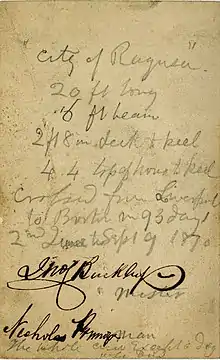 "City of Ragusa"
20 ft long
6 ft beam
2 ft 8 in deck & keel
4.4 top of house & keel
Crossed from Liverpool
to Boston in 93 days
2nd June to Sept 9 1870
Jno Buckley
Master
Nicholas Primoraz
man
The whole crew except a dog